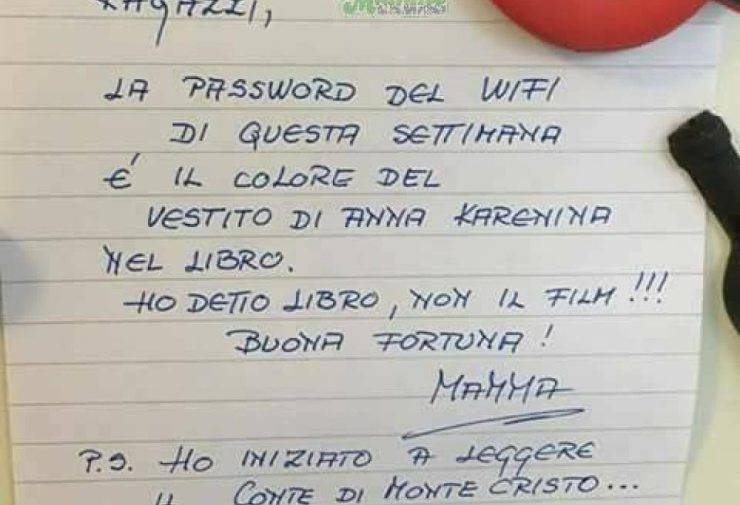 RAGAZZI,
LA PASSWORD DEL WIFI
DI QUESTA SETTIMANA
É IL COLORE DEL
VESTITO DI ANNA KARENINA
NEL LIBRO.
HO DETTO LIBRO, NON IL FILM!!!
BUONA FORTUNA!
MAMMA
P.S. HO INIZIATO A LEGGERE
IL CONTE DI MONTE CRISTO...